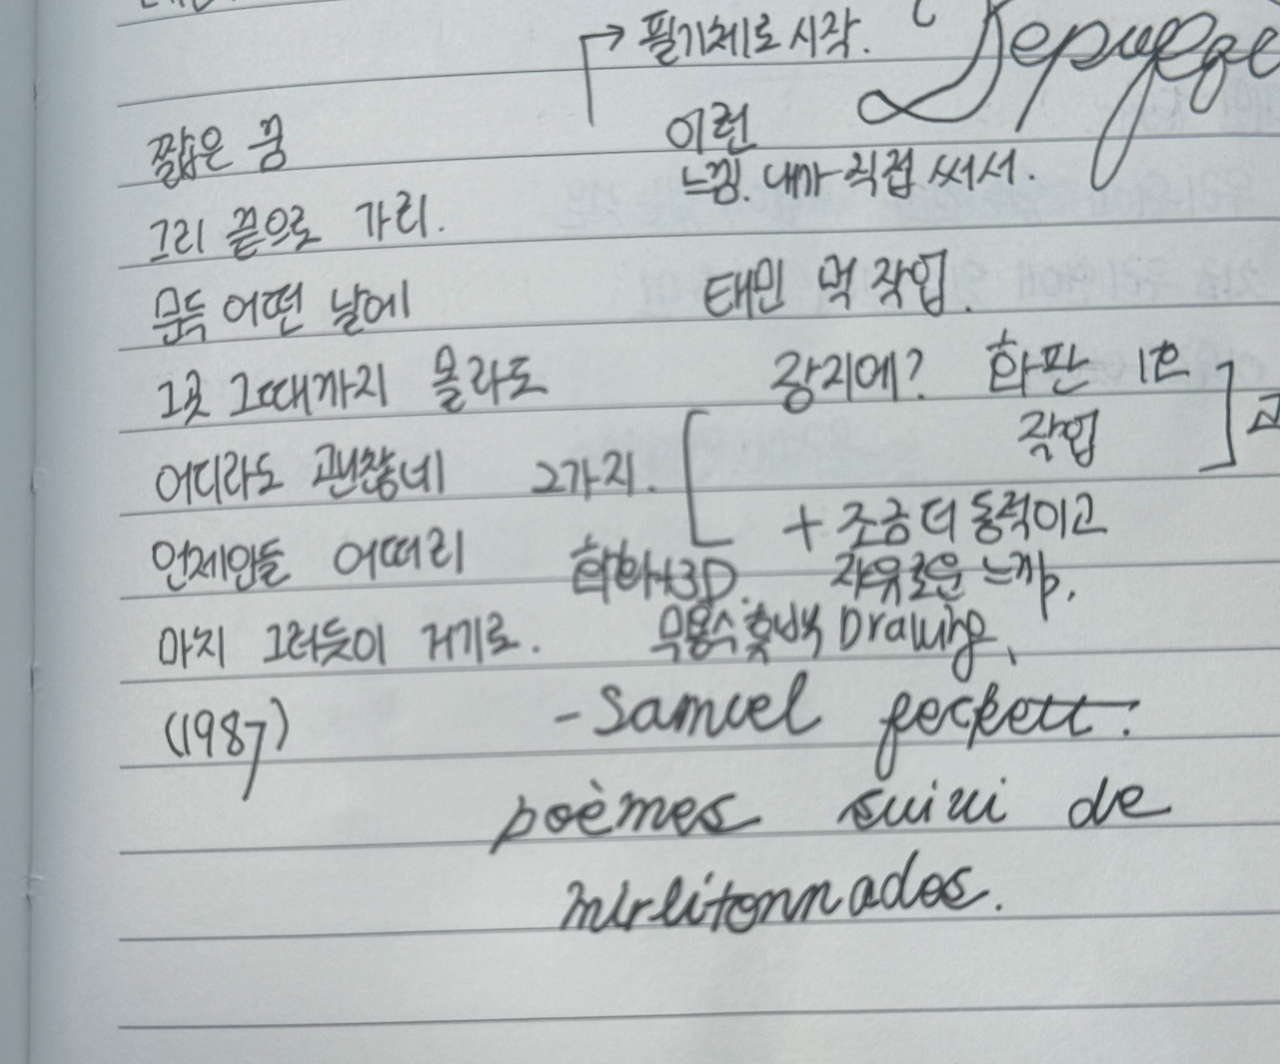 필기체로 시작.
이런
느낌. 내가 직접 써서.
짧은 꿈
그리 끝으로 가리.
문득 어떤 날에
그곳 그때까지 몰라도
어디라도 괜찮네
언제인들 어떠리
마치 그러듯이 거기로.
(1987)
태민 먹 작업.
장지에? 화판 1호
작업
2가지.
+ 조금 더 동적이고
자유로운 느낌.
회화+3D.
무용수 흑백 Drawing
- Samuel Beckett:
poèmes suivi de
mirlitonnades.